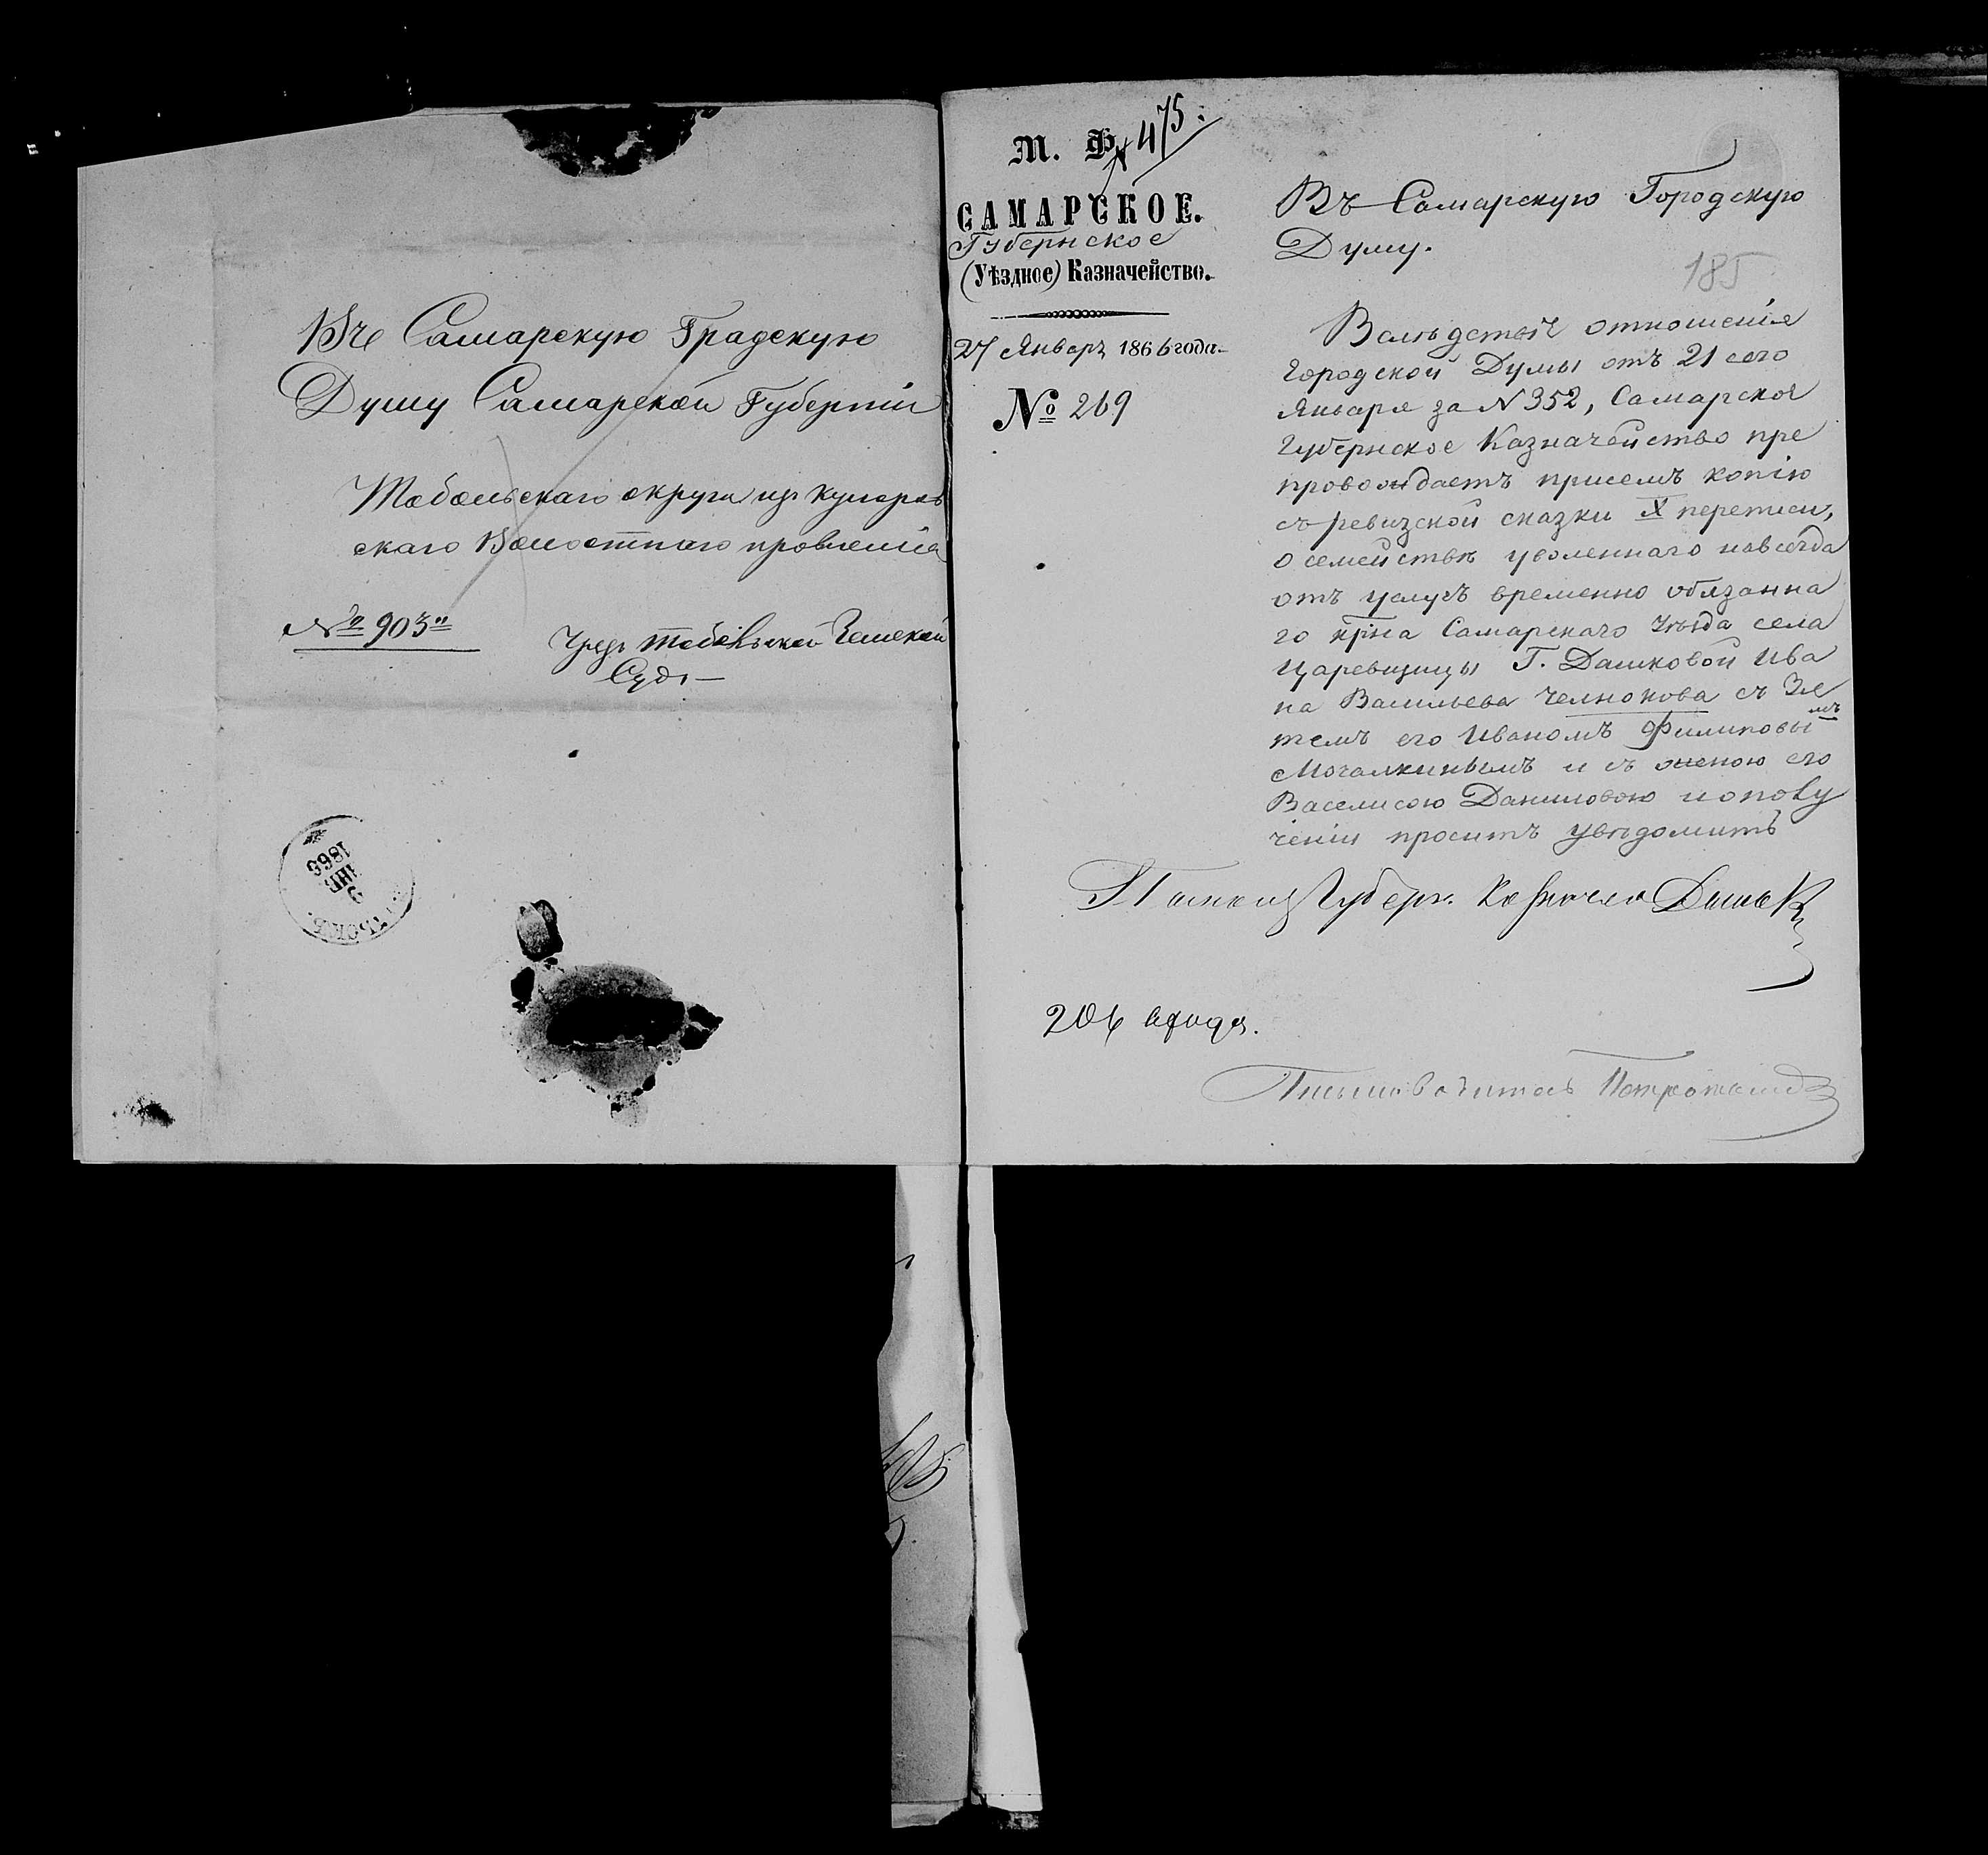 Въ Самарскую Градскую
Думу Самарской Губерніи
Тобольскаго округа изъ
скаго Волостнаго правленія
№ 903
Чрезъ Тобольской Земской
Судъ
9
ЯНВ.
1866
М. Ф.
№ 475
САМАРСКОЕ.
Губернское
(Уѣздное) Казначейство.
27 Январь 1866 года.
№ 269
Въ Самарскую Городскую
Думу.
185
Вслѣдствіе отношенія
Городской Думы отъ 21 сего
Января за N 352, Самарское
Губернское Казначейство пре
провождаетъ присемъ копію
съ ревизской сказки X переписи,
о семействѣ уволеннаго навсегда
отъ услугъ временно обязанна
го крна Самарскаго Уѣзда села
Царевщины Г. Дашковой Ива
на Васильева Челнокова съ Зя
темъ его Иваномъ Филиповымъ
Мочалкинымъ и съ женою его
Васелисою Даниловою и о полу
ченіи проситъ увѣдомить
Губерн. Казначея
206
Письмоводитель